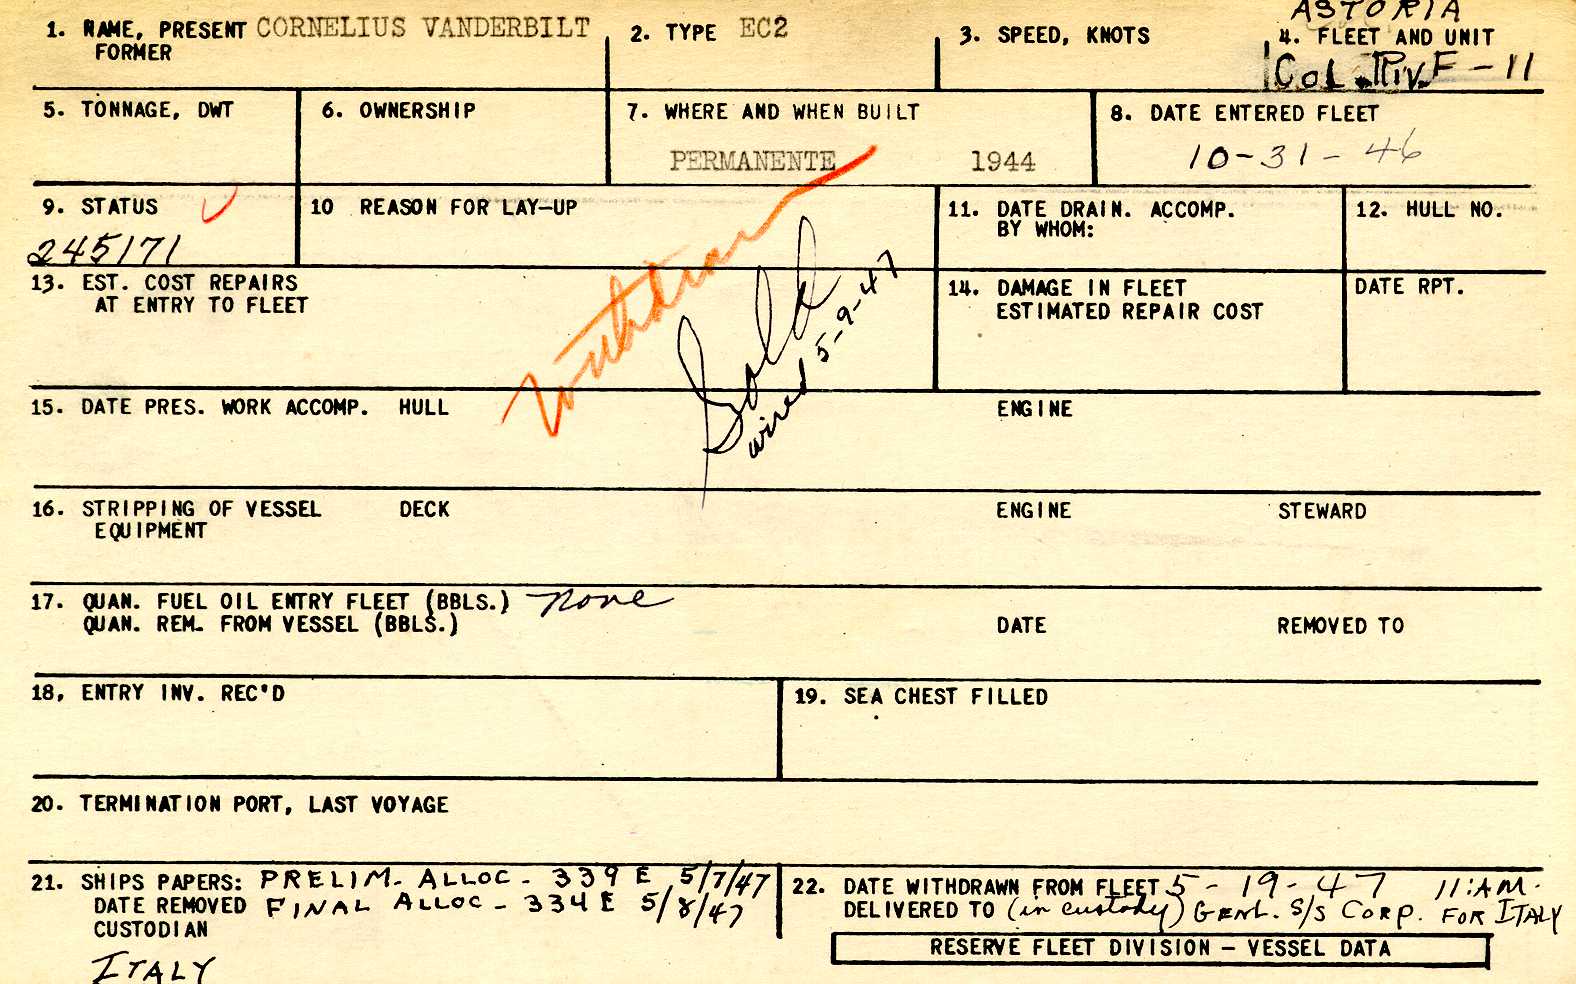 ASTORIA
1. NAME, PRESENT CORNELIUS VANDERBILT
FORMER
2. TYPE EC2
3. SPEED, KNOTS
4. FLEET AND UNIT
Col. Riv. F-11
5. TONNAGE, DWT
6. OWNERSHIP
7. WHERE AND WHEN BUILT
PERMANENTE 1944
8. DATE ENTERED FLEET
10-31-46
9. STATUS
245171
10 REASON FOR LAY-UP
11. DATE DRAIN. ACCOMP.
BY WHOM:
12. HULL NO.
13. EST. COST REPAIRS
AT ENTRY TO FLEET
Withdrawn
Sold
wired 5-9-47
14. DAMAGE IN FLEET
ESTIMATED REPAIR COST
DATE RPT.
15. DATE PRES. WORK ACCOMP. HULL ENGINE
16. STRIPPING OF VESSEL DECK ENGINE STEWARD
EQUIPMENT
17. QUAN. FUEL OIL ENTRY FLEET (BBLS.) none
QUAN. REM. FROM VESSEL (BBLS.) DATE REMOVED TO
18. ENTRY INV. REC'D
19. SEA CHEST FILLED
20. TERMINATION PORT, LAST VOYAGE
21. SHIPS PAPERS: PRELIM. ALLOC - 339 E 5/7/47
DATE REMOVED FINAL ALLOC - 334 E 5/8/47
CUSTODIAN
ITALY
22. DATE WITHDRAWN FROM FLEET 5-19-47 11:AM.
DELIVERED TO (in custody) GENL. S/S CORP. FOR ITALY
RESERVE FLEET DIVISION - VESSEL DATA